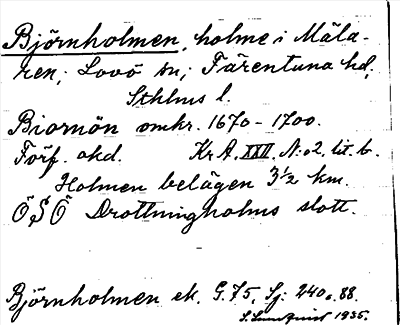 Björnholmen, holme i Mäla-
ren; Lovö sn; Färentuna hd,
Sthlms l.
Biornön omkr. 1670-1700.
Förf. okd. KrA. XXII. N:o 2. lit. b.
Holmen belägen 3½ km.
Ö S Ö Drottningholms slott.
Björnholmen ek. G. 75, Sj: 240 o. 88.
S. Lundqvist 1935.